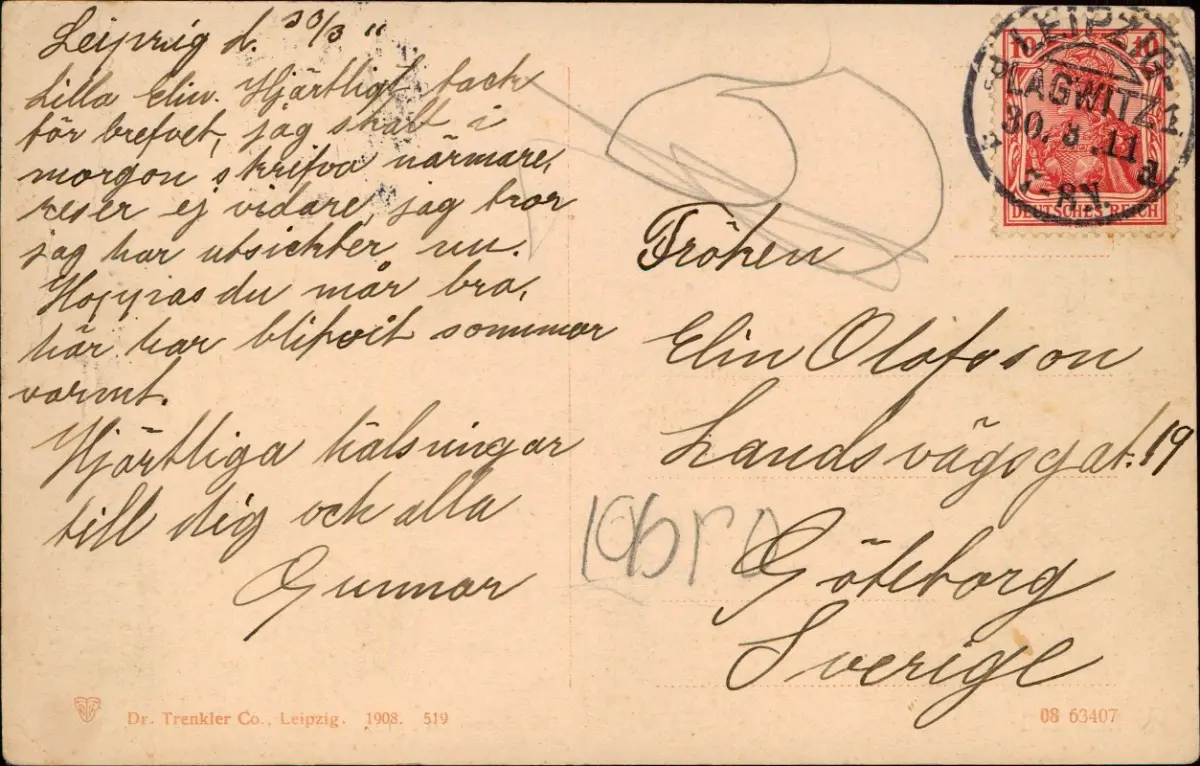 Leipzig d. 30/3 11
Lilla Elin. Hjärtligt tack
för brefvet, jag skall i
morgon skrifva närmare,
reser ej vidare, jag tror
jag har utsikter nu.
Hoppas du mår bra,
här har blifvit sommar
varmt.
Hjärtliga hälsningar
till dig och alla
Gunnar
Fröken
Elin Olofsson
Landsvägsgat. 19
Göteborg
Sverige
LEIPZIG-
PLAGWITZ 1
30. 3 .11
-8 V.
a
10 10
DEUTSCHES REICH
Dr. Trenkler Co., Leipzig. 1908. 519
08 63407